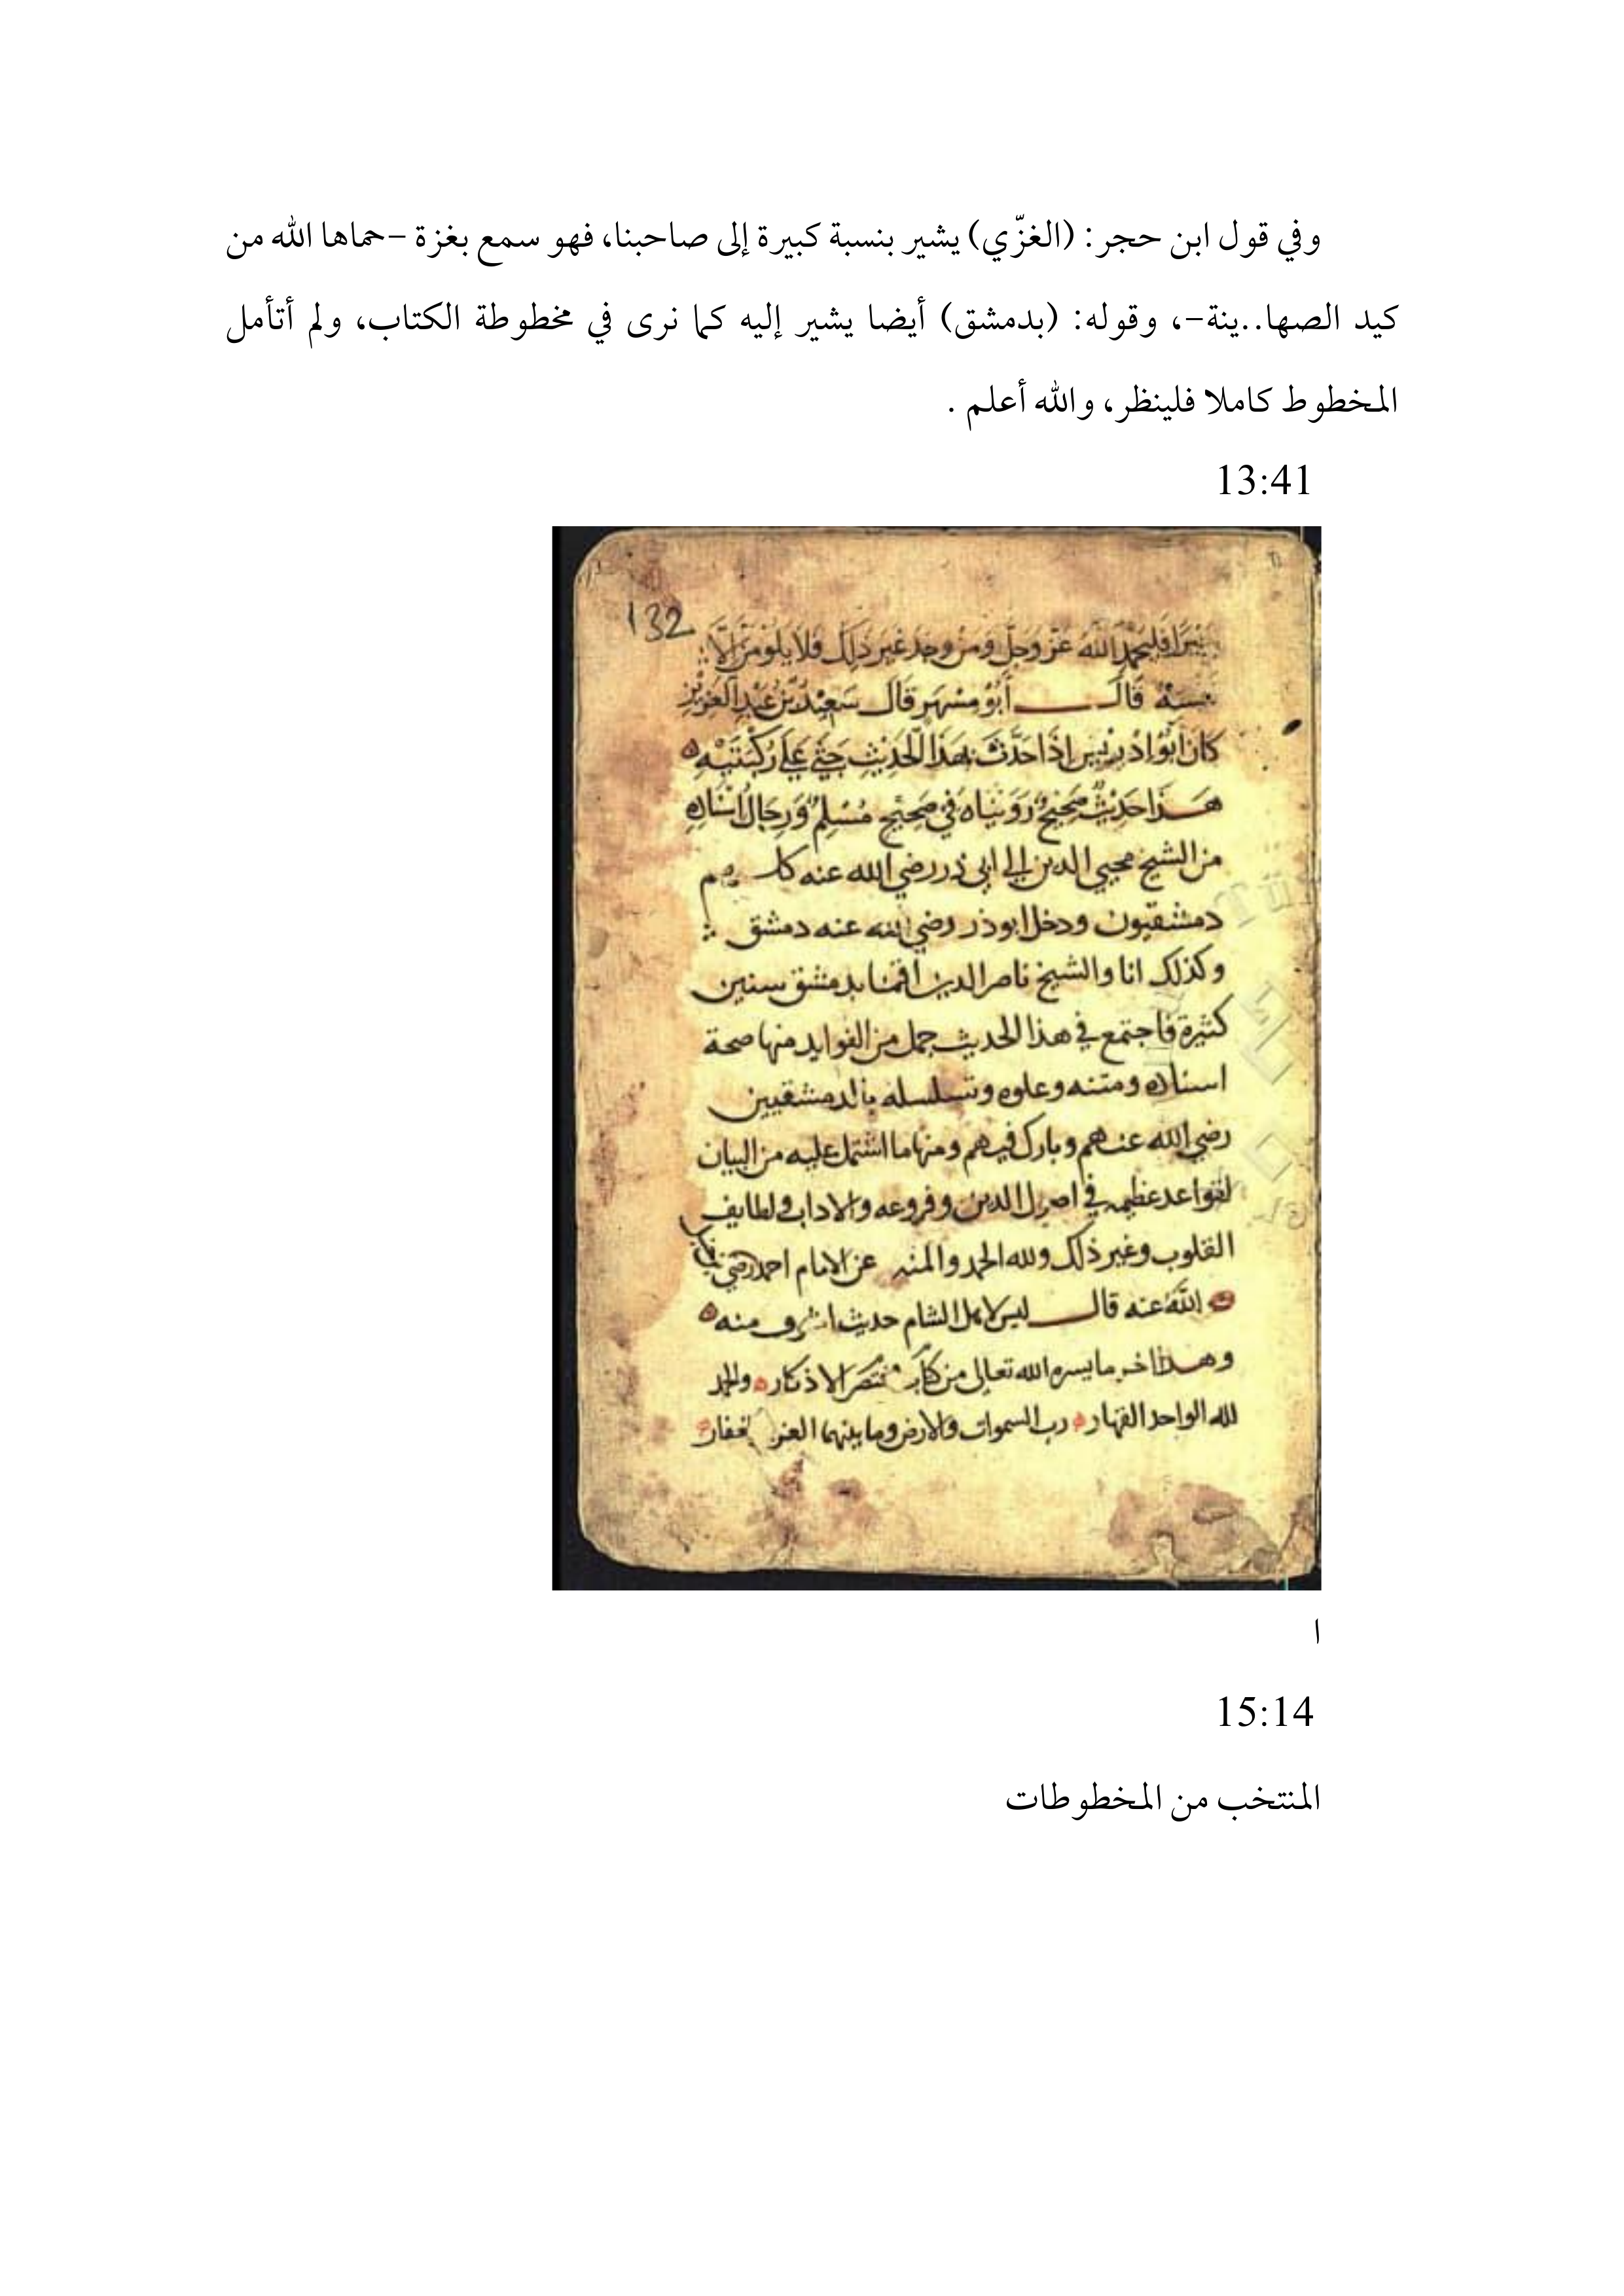 وفي قول ابن حجر: (الغزّي) يشير بنسبة كبيرة إلى صاحبنا، فهو سمع بغزة -حماها الله من
كيد الصها..ينة-، وقوله: (بدمشق) أيضا يشير إليه كما نرى في مخطوطة الكتاب، ولم أتأمل
المخطوط كاملا فلينظر، والله أعلم .
13:41
132
خَيْرًا فليحمد الله عَزَّ وَجَلَّ وَمَنْ وجد غَيرَ ذَلِكَ فلا يَلُومَنَّ إلَّا
نفسه قَالَ أَبُو مُسْهِر قَالَ سَعِيدُ بْنُ عَبْدِ العَزِيزِ
كان أَبُو إدريس إذَا حَدَّثَ بهَذَا الحَدِيثِ جَثَى عَلَى رُكْبَتَيْهِ
هَذَا حَدِيثٌ صَحِيحٌ رَوَيْنَاهُ فِي صَحِيحِ مُسْلِمٍ وَرِجَالُ اسْنَادِهِ
من الشيخ محيي الدين الى ابي ذر رضي الله عنه كلهم
دمشقيون ودخل ابوذر رضي الله عنه دمشق
وكذلك انا والشيخ ناصر الدين اقمنا بدمشق سنين
كثيرة فاجتمع في هذا الحديث جمل من الفوايد منها صحة
اسناده ومتنه وعلوه وتسلسله بالدمشقيين
رضي الله عنهم وبارك فيهم ومنها ما اشتمل عليه من البيان
لقواعد عظيمه في اصول الدين وفروعه والاداب ولطايف
القلوب وغير ذلك ولله الحمد والمنه عن الامام احمد رضي
الله عنه قال ليس لاهل الشام حديث اشرف منه
وهذا اخر ما يسره الله تعالى من كتاب مختصر الاذكار والحمد
لله الواحد القهار رب السموات والارض وما بينهما العزيز الغفار
ا
15:14
المنتخب من المخطوطات